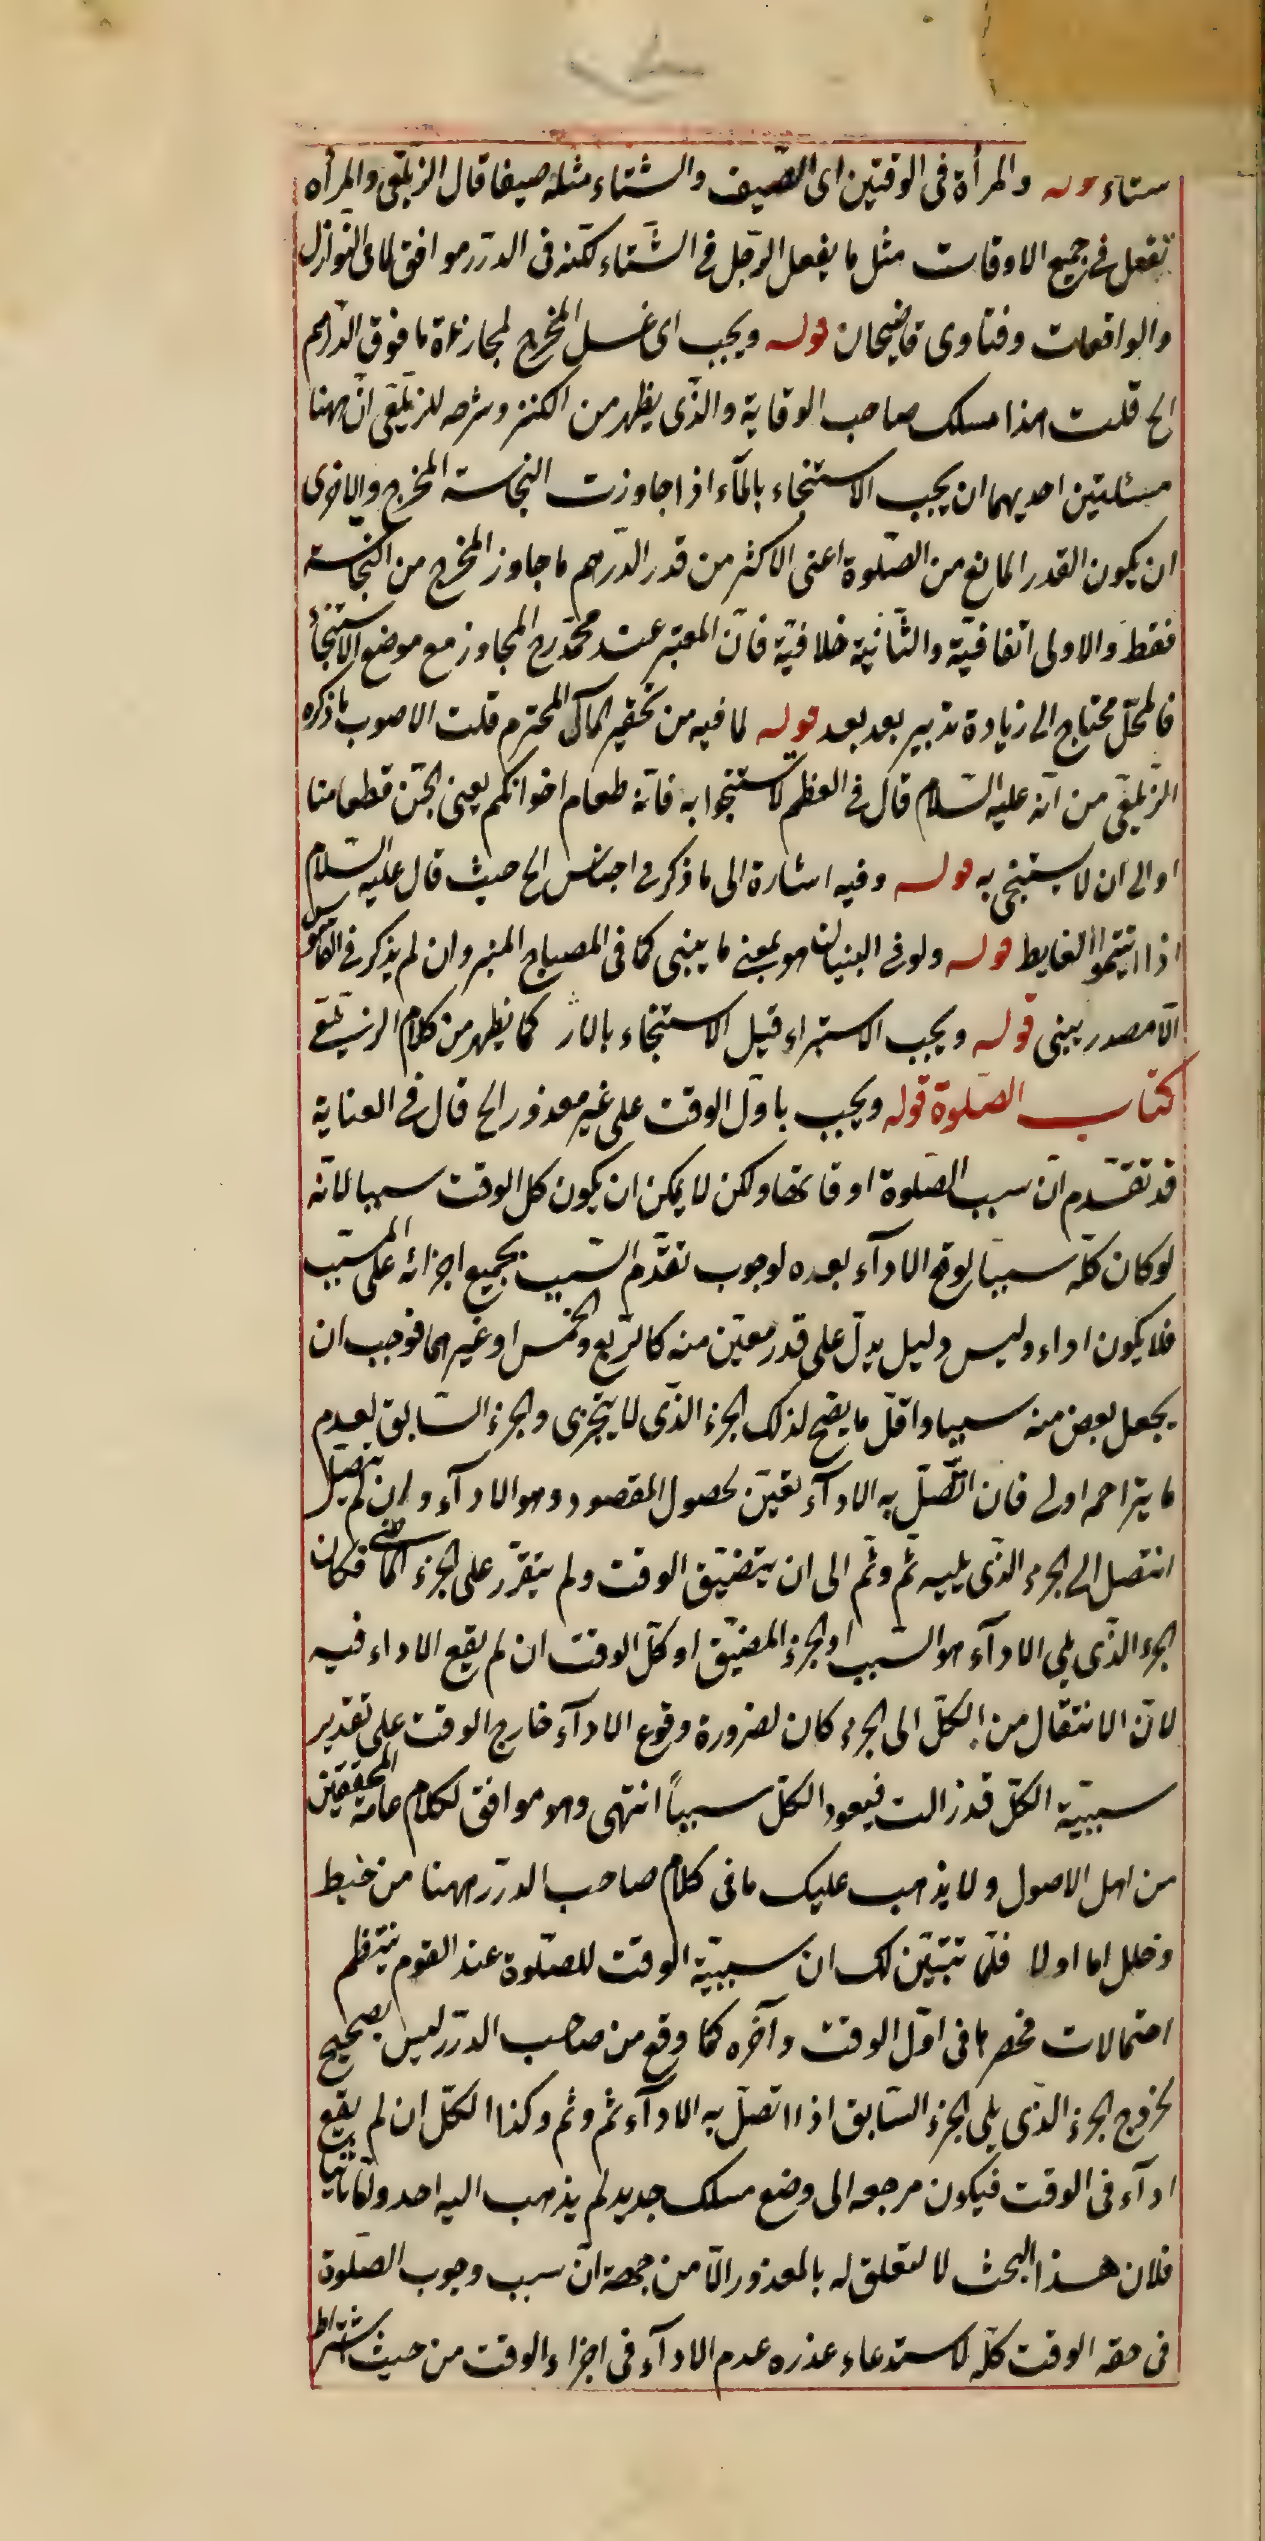 شتاء قوله والمرأة فى الوقتين اى الصّيف والشتاء مثله صيفا قال الزيلعى والمرأه
تفعل فى جميع الاوقات مثل ما يفعل الرّجل فى الشّتاء لكنّه فى الدّرر موافق لما فى النّوازل
والواقعات وفتاوى قاضيخان قوله ويجب اى غسل المخرج لمجاوزة ما فوق الدّرهم
الخ قلت هذا مسلك صاحب الوقاية والذّى يظهر من الكنز وشرحه للزّيلعى انّ ههنا
مسئلتين احديهما ان يجب الاستنجاء بالمآء اذا جاوزت النجاسة المخرج والاخرى
ان يكون القدر المانع من الصّلوة اعنى الاكثر من قدر الدّرهم ما جاوز المخرج من النّجاسة
فقط والاولى اتّفاقيّة والثّانية خلافيّة فانّ المعتبر عند محمّد رح المجاوز مع موضع الاستنجاء
فالمحلّ محتاج الى زيادة تدبير بعد بعد قوله لما فيه من تحقير المآل المحترم قلت الاصوب ما ذكره
الزّيلعى من انّه عليه السّلام قال فى العظم لا تستنجوا به فانّه طعام اخوانكم يعنى الجنّ فطعامنا
اوالى ان لا يستنجى به قوله وفيه اشارة الى ما ذكر فى اجناس الخ حيث قال عليه السّلام
اذا اتيتموا الغايط قوله ولو فى البنيان هو بمعنى ما يبنى كما فى المصباح المنير وان لم يذكر فى القاموس
الّا مصدر يبنى قوله ويجب الاستبراء قبل الاستنجاء بالمار كما يظهر من كلام الزّيلعى
كتاب الصّلوة قوله ويجب باوّل الوقت على غير معذور الخ قال فى العناية
قد تقدّم انّ سبب الصّلوة اوقاتها ولكن لا يمكن ان يكون كل الوقت سببا لانّه
لو كان كلّه سببا لوقع الادآء بعده لوجوب تقدّم السّبب بجميع اجزائه على المسبّب
فلا يكون اداء وليس دليل يدلّ على قدر معيّن منه كالرّبع والخمس او غيرهما فوجب ان
يجعل بعض منه سببا واقلّ ما يصحّ لذلك الجزء الذّى لا يتجزى والجزء السّابق لعدم
ما يتزاحمه اولى فان اتّصل به الادآء تعيّن لحصول المقصود وهو الادآء وان لم يتّصل
انتقل الى الجزء الذّى يليه ثم وثم الى ان يتضيّق الوقت ولم يتقرّر على الجزء الماضى فكان
الجزء الذّى يلى الادآء هو السّبب او الجزء المضيّق او كلّ الوقت ان لم يقع الاداء فيه
لانّ الانتقال من الكلّ الى الجزء كان لضرورة وقوع الادآء خارج الوقت على تقدير
سببيّة الكلّ قد زالت فيعود الكلّ سبباً انتهى وهو موافق لكلام عامة المحققين
من اهل الاصول ولا يذهب عليك ما فى كلام صاحب الدّرر ههنا من خبط
وخلل اما اولا فلما تبيّن لك ان سببيّة الوقت للصّلوة عند القوم ينتظم
احتمالات فحصرها فى اوّل الوقت وآخره كما وقع من صاحب الدّرر ليس بصحيح
لخروج الجزء الذّى يلى الجزء السّابق اذا اتصل به الادآء ثم وثم وكذا الكلّ ان لم يقع
ادآء فى الوقت فيكون مرجعه الى وضع مسلك جديد لم يذهب اليه احد وامّا ثانيا
فلان هذا البحث لا تعلق له بالمعذور الّا من جهة انّ سبب وجوب الصّلوة
فى حقه الوقت كلّه لاستدعاء عذره عدم الادآء فى اجزاء الوقت من حيث اشتراط